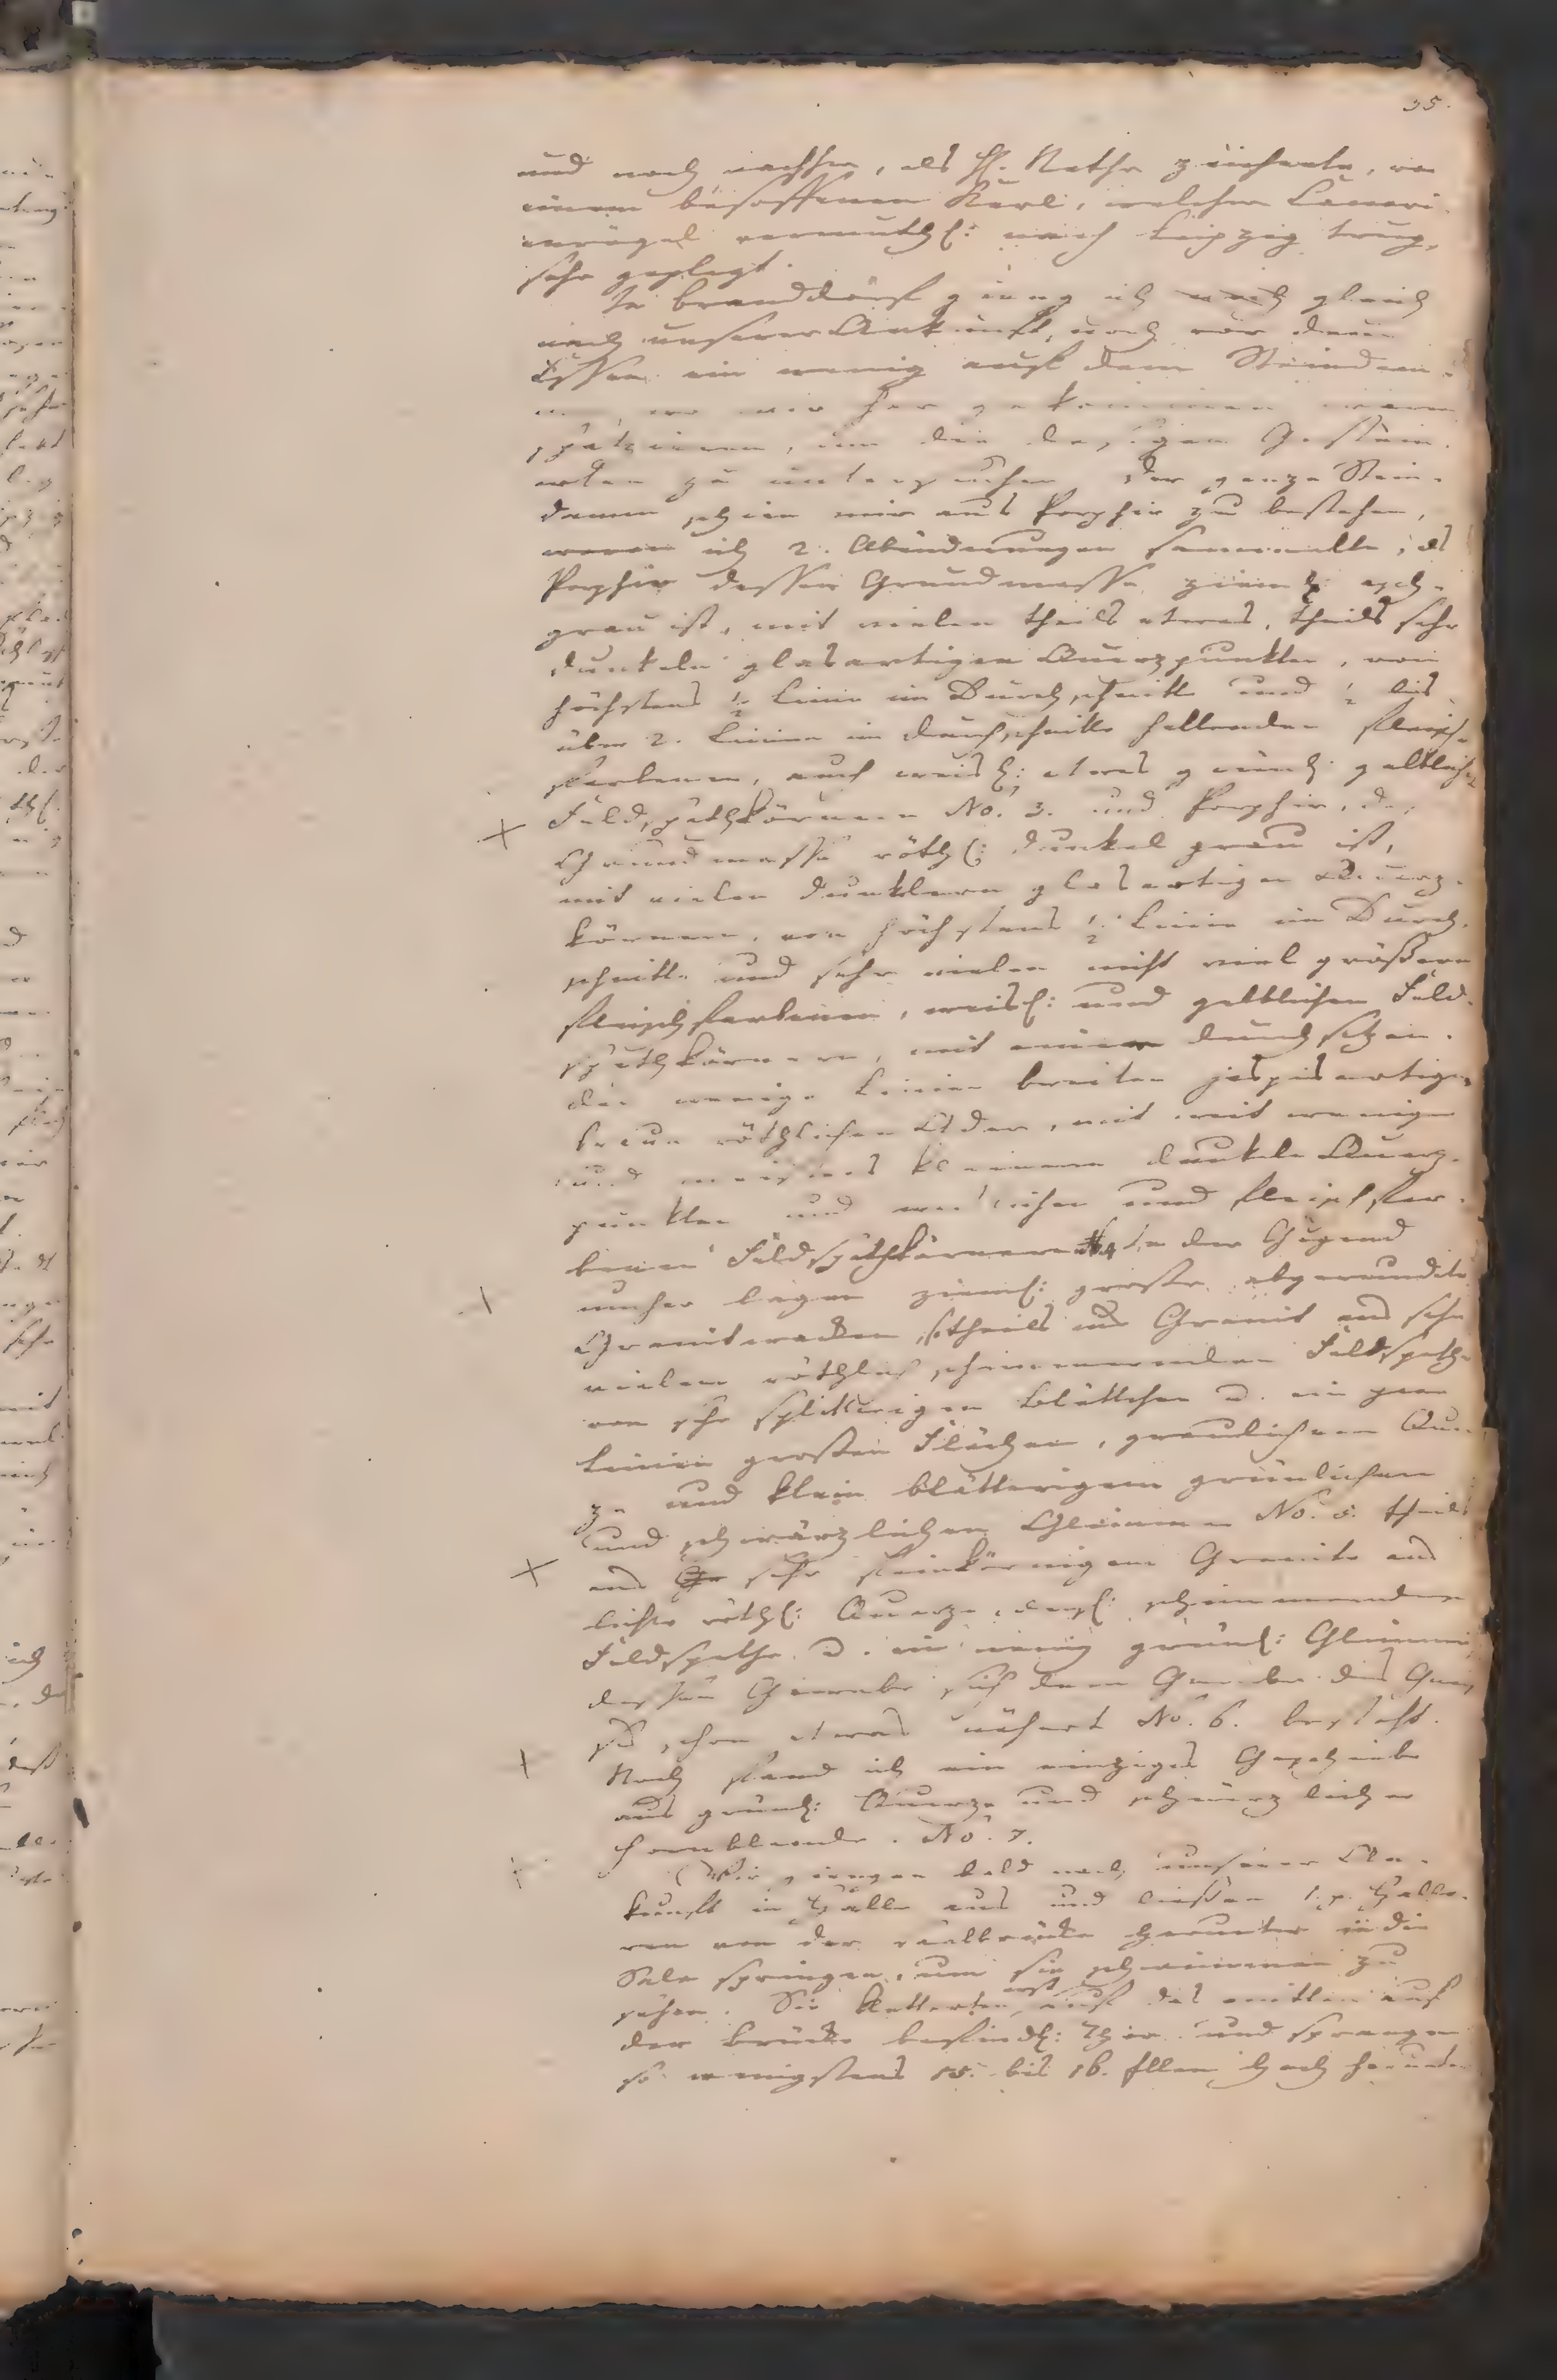 35.
und noch nachher, als H. Nathe zeichnete, von
einem besoffenen Kerl, welcher Canari-
envögel vermuthl: nach Leipzig trug,
sehr geplagt.
In Branddorf gieng ich noch gleich
nach unserer Ankunft, noch vor dem
Essen ein wenig auf dem Steindam-
wo wir her gekommen waren
spatzieren, um die dasigen Gestein-
arten zu untersuchen. Der ganze Stein-
damm schien mir aus Porphir zu bestehen,
wovon ich 2. Abänderungen sammelte, als
Porphir dessen Grundmasse ziemlich asch-
grau ist, mit vielen theils etwas, theils sehr
dunkeln glasartigen Quarzpunkten, von
höchstens ½ Linie im Durchschnitte und ½ bis
über 2. Linien im Durchschnitte haltenden fleisch-
farbenen, auch weisl: etwas grünl: gelblichen
Feldspathkörnern No. 3. und Porphir, des
Grundmasse röthl: dunkel grau ist,
mit vielen dunklern glasartigen Quarz-
körnern, von höchstens ½ Linie im Durch-
schnitte und sehr vielen nicht viel größern
fleischfarbenen, weisl: und gelblichen Feld-
spathkörnern, mit einer durchsetzen-
den wenige Linien breiten jaspisartigen
braun röthlichen Ader, mit weit wenigern
und meistens kleinern dunkeln Quarz-
punkten und weislichen und fleischfar-
benen Feldspathkörnern. In der Gegend
umher lagen zieml: große abgerundete
Granitwacken, theils aus Granit aus sehr
vielem röthlich schimmernden Feldspathe
von sehr splitterigen Blättchen u. ein paar
Linien großen Flächen, graulichem Quar-
ze und klein blätterigem grünlichen
und schwärzlichen Glimmer No. 5. theils
aus sehr feinkörnigem Granite aus
lichte röthl: Quarze, dergl: schimmernden
Feldspathe u. ein wenig grünl: Glimmer,
dessen Gewebe sich dem Gewebe des Gnei-
ses schon etwas nähert No. 6. besteht.
Noch fand ich ein einziges Geschiebe
aus grünl: Quarze und schwärzlicher
Hornblende. No. 7.
Wir giengen bald nach unserer An-
kunft in Halle aus und ließen Hallo-
ren von der Saalbrücke herunter in die
Sale springen, um sie schwimmen zu
sehen. Sie kletterten erst auf das mitten auf
der Brücke befindl: Thor und sprangen
so wenigstens 15. bis 16. Ellen hoch herunter